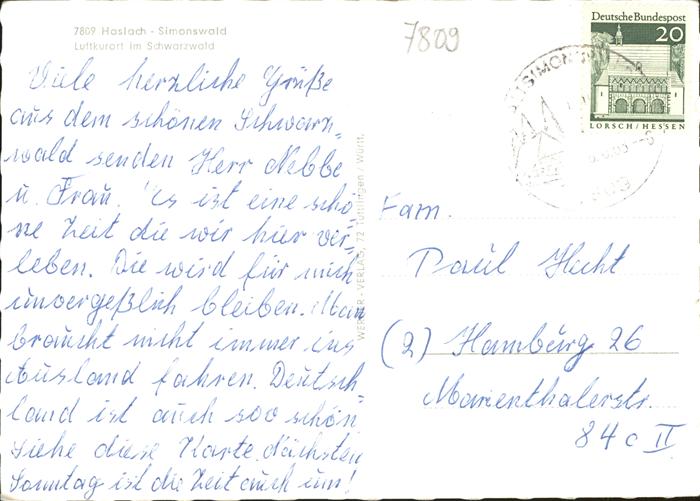 7809 Haslach - Simonswald
Luftkurort im Schwarzwald
7809
Deutsche Bundespost
20
LORSCH/HESSEN
Viele herzliche Grüße
aus dem schönen Schwarz-
wald senden Herr Nebbe
u. Frau. Es ist eine schö-
ne Zeit die wir hier ver-
leben. Die wird für mich
unvergeßlich bleiben. Man
braucht nicht immer ins
Ausland fahren. Deutsch-
land ist auch soo schön
siehe diese Karte. Nächsten
Sonntag ist die Zeit auch um!
WERNER-VERLAG, 72 Tuttlingen / Württ.
Fam.
Paul Hecht
(2) Hamburg 26
Marienthalerstr.
84 c II